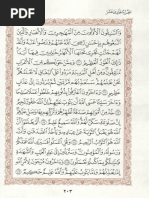 وَٱلسَّٰبِقُونَ ٱلْأَوَّلُونَ مِنَ ٱلْمُهَٰجِرِينَ وَٱلْأَنصَارِ وَٱلَّذِينَ
ٱتَّبَعُوهُم بِإِحْسَٰنٍ رَّضِىَ ٱللَّهُ عَنْهُمْ وَرَضُوا۟ عَنْهُ وَأَعَدَّ
لَهُمْ جَنَّٰتٍ تَجْرِى تَحْتَهَا ٱلْأَنْهَٰرُ خَٰلِدِينَ فِيهَآ أَبَدًا ذَٰلِكَ
ٱلْفَوْزُ ٱلْعَظِيمُ ١٠٠ وَمِمَّنْ حَوْلَكُم مِّنَ ٱلْأَعْرَابِ مُنَٰفِقُونَ
وَمِنْ أَهْلِ ٱلْمَدِينَةِ مَرَدُوا۟ عَلَى ٱلنِّفَاقِ لَا تَعْلَمُهُمْ نَحْنُ نَعْلَمُهُمْ
سَنُعَذِّبُهُم مَّرَّتَيْنِ ثُمَّ يُرَدُّونَ إِلَىٰ عَذَابٍ عَظِيمٍ ١٠١ وَءَاخَرُونَ
ٱعْتَرَفُوا۟ بِذُنُوبِهِمْ خَلَطُوا۟ عَمَلًا صَٰلِحًا وَءَاخَرَ سَيِّئًا عَسَى ٱللَّهُ
أَن يَتُوبَ عَلَيْهِمْ إِنَّ ٱللَّهَ غَفُورٌ رَّحِيمٌ ١٠٢ خُذْ مِنْ أَمْوَٰلِهِمْ صَدَقَةً
تُطَهِّرُهُمْ وَتُزَكِّيهِم بِهَا وَصَلِّ عَلَيْهِمْ إِنَّ صَلَوٰتَكَ سَكَنٌ لَّهُمْ
وَٱللَّهُ سَمِيعٌ عَلِيمٌ ١٠٣ أَلَمْ يَعْلَمُوٓا۟ أَنَّ ٱللَّهَ هُوَ يَقْبَلُ ٱلتَّوْبَةَ
عَنْ عِبَادِهِۦ وَيَأْخُذُ ٱلصَّدَقَٰتِ وَأَنَّ ٱللَّهَ هُوَ ٱلتَّوَّابُ ٱلرَّحِيمُ ١٠٤
وَقُلِ ٱعْمَلُوا۟ فَسَيَرَى ٱللَّهُ عَمَلَكُمْ وَرَسُولُهُۥ وَٱلْمُؤْمِنُونَ وَسَتُرَدُّونَ
إِلَىٰ عَٰلِمِ ٱلْغَيْبِ وَٱلشَّهَٰدَةِ فَيُنَبِّئُكُم بِمَا كُنتُمْ تَعْمَلُونَ ١٠٥ وَءَاخَرُونَ
مُرْجَوْنَ لِأَمْرِ ٱللَّهِ إِمَّا يُعَذِّبُهُمْ وَإِمَّا يَتُوبُ عَلَيْهِمْ وَٱللَّهُ عَلِيمٌ حَكِيمٌ ١٠٦
٢٠٣